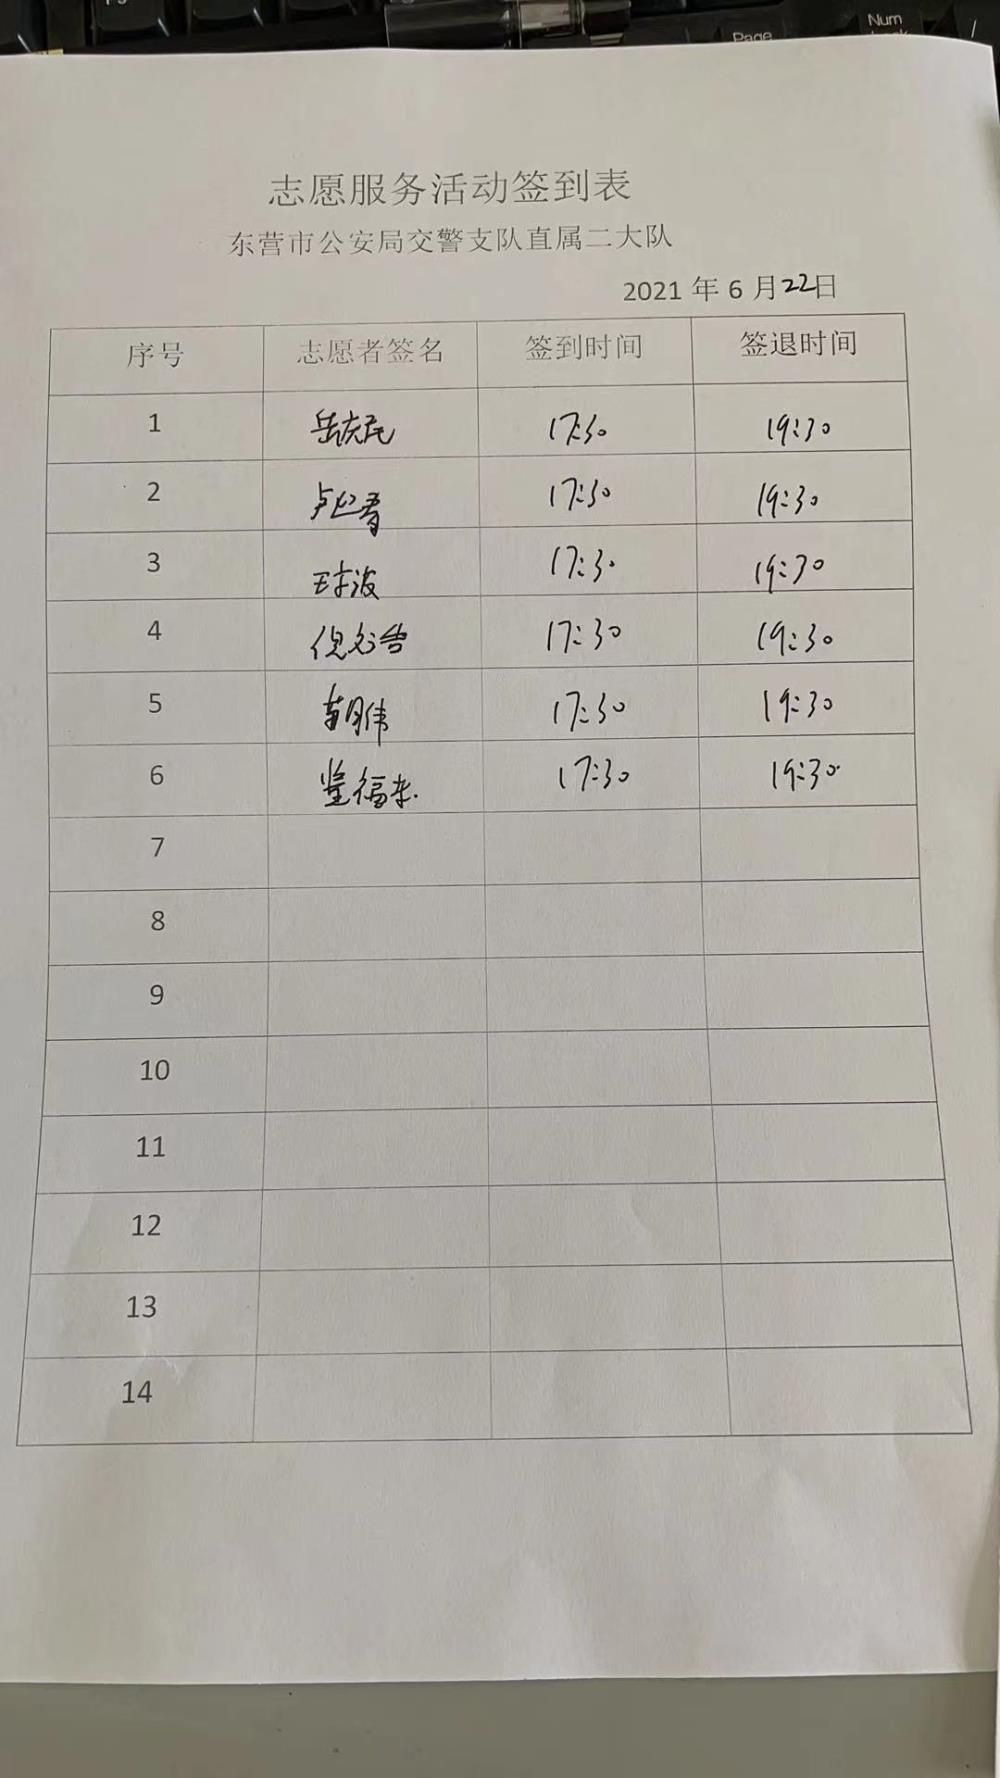 Page
Num
志愿服务活动签到表
东营市公安局交警支队直属二大队
2021 年 6 月22日
序号 志愿者签名 签到时间 签退时间
1 岳庆民 17:30 19:30
2 17:30 19:30
3 17:30 19:30
4 17:30 19:30
5 苗月伟 17:30 19:30
6 福来 17:30 19:30
7
8
9
10
11
12
13
14